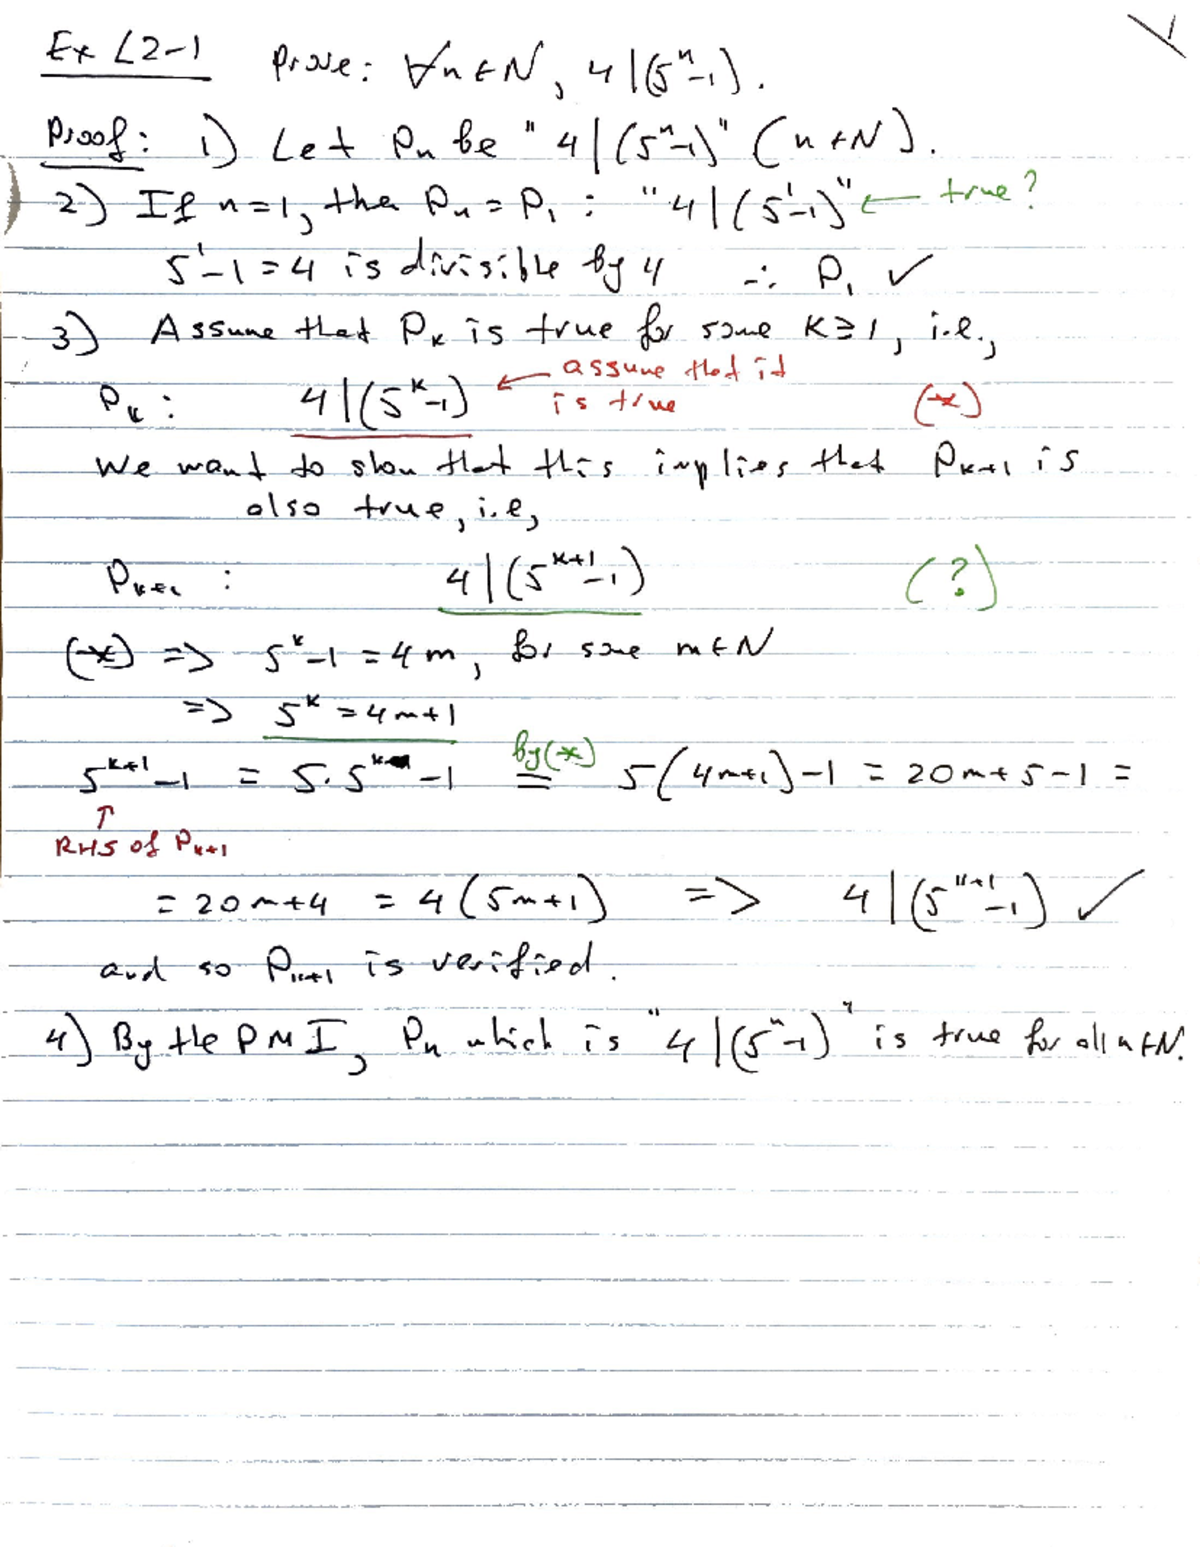 Ex L2-1 Prove: ∀n∈N, 4|(5ⁿ-1).
Proof: 1) Let Pₙ be "4|(5ⁿ-1)" (n∈N).
2) If n=1, the Pₙ = P₁ : "4|(5¹-1)" ← true?
5¹-1=4 is divisible by 4 ∴ P₁ ✓
3) Assume that Pₖ is true for some K≥1, i.e.,
Pₖ: 4|(5ᵏ-1) ← assume that it is true (*)
We want to show that this implies that Pₖ₊₁ is
also true, i.e,
Pₖ₊₁ : 4|(5ᵏ⁺¹-1) (?)
(*) => 5ᵏ-1 = 4m, for some m∈N
=> 5ᵏ = 4m+1
5ᵏ⁺¹-1 = 5·5ᵏ-1 = by(*) 5(4m+1)-1 = 20m+5-1 =
↑
RHS of Pₖ₊₁
= 20m+4 = 4(5m+1) => 4|(5ᵏ⁺¹-1) ✓
and so Pₖ₊₁ is verified.
4) By the PMI, Pₙ which is "4|(5ⁿ-1)" is true for all n∈N.